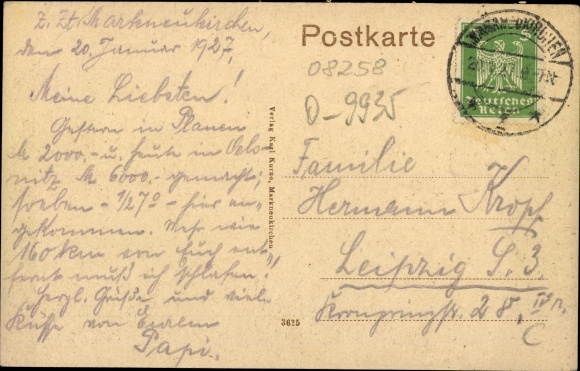 z. Zt. Markneukirchen,
den 20. Januar 1927.
Meine Liebsten!
Gestern in Plauen
M 2000,- u. heute in Oels-
nitz M 6000,- gemacht;
soeben - 1/2 7° - hier an-
gekommen. Mehr wie
160 km von Euch ent-
fernt muß ich schlafen!
Herzl. Grüße und viele
Küsse von Eurem
Papi.
Verlag Karl Kurze, Markneukirchen
3625
Postkarte
MARKNEUKIRCHEN
Deutsches
Reich
08258
O-9935
Familie
Hermann Kropf
Leipzig S. 3.
Kronprinzstr. 28, IV r.
C